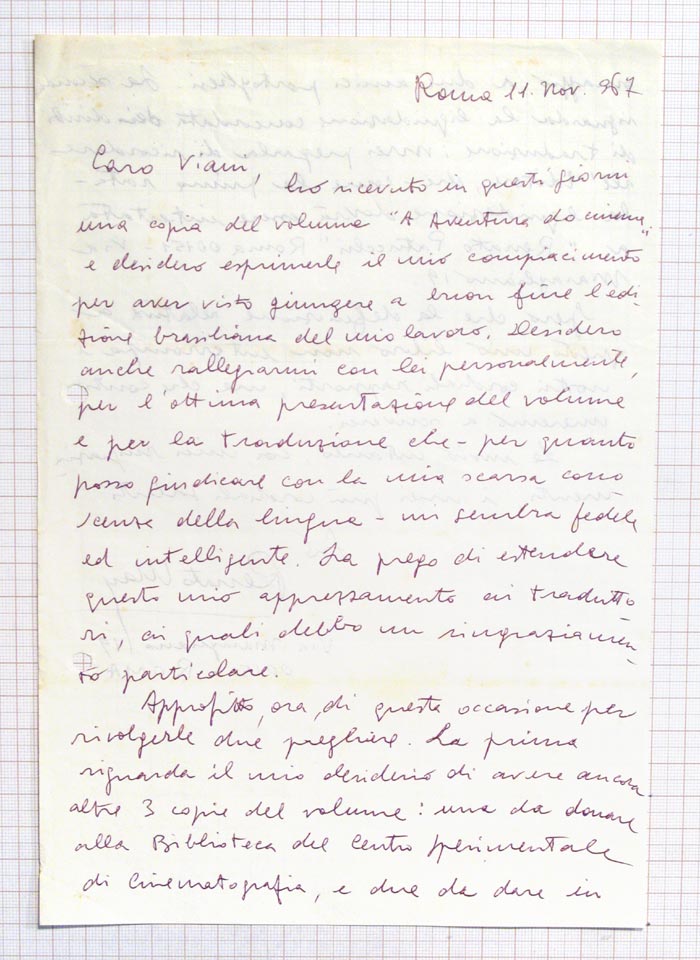 Roma 11. Nov. 967
Caro Viani,
ho ricevuto in questi giorni
una copia del volume "A Aventura do cinema"
e desidero esprimerle il mio compiacimento
per aver visto giungere a buon fine l'edi-
zione brasiliana del mio lavoro. Desidero
anche rallegrarmi con lei personalmente,
per l'ottima presentazione del volume
e per la traduzione che - per quanto
posso giudicare con la mia scarsa cono
scenza della lingua - mi sembra fedele
ed intelligente. La prego di estendere
questo mio apprezzamento ai tradutto
ri, ai quali debbo un ringraziamen-
to particolare.
Approfitto, ora, di questa occasione per
rivolgerle due preghiere. La prima
riguarda il mio desiderio di avere ancora
altre 3 copie del volume: una da donare
alla Biblioteca del Centro Sperimentale
di Cinematografia, e due da dare in